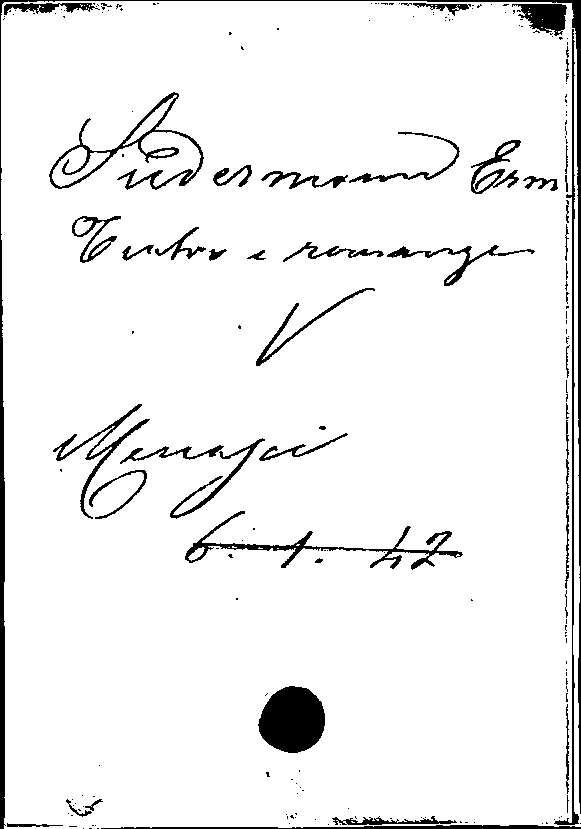 Sudermann Erm
Teatro e romanze
V
Menasci
6. 1. 42